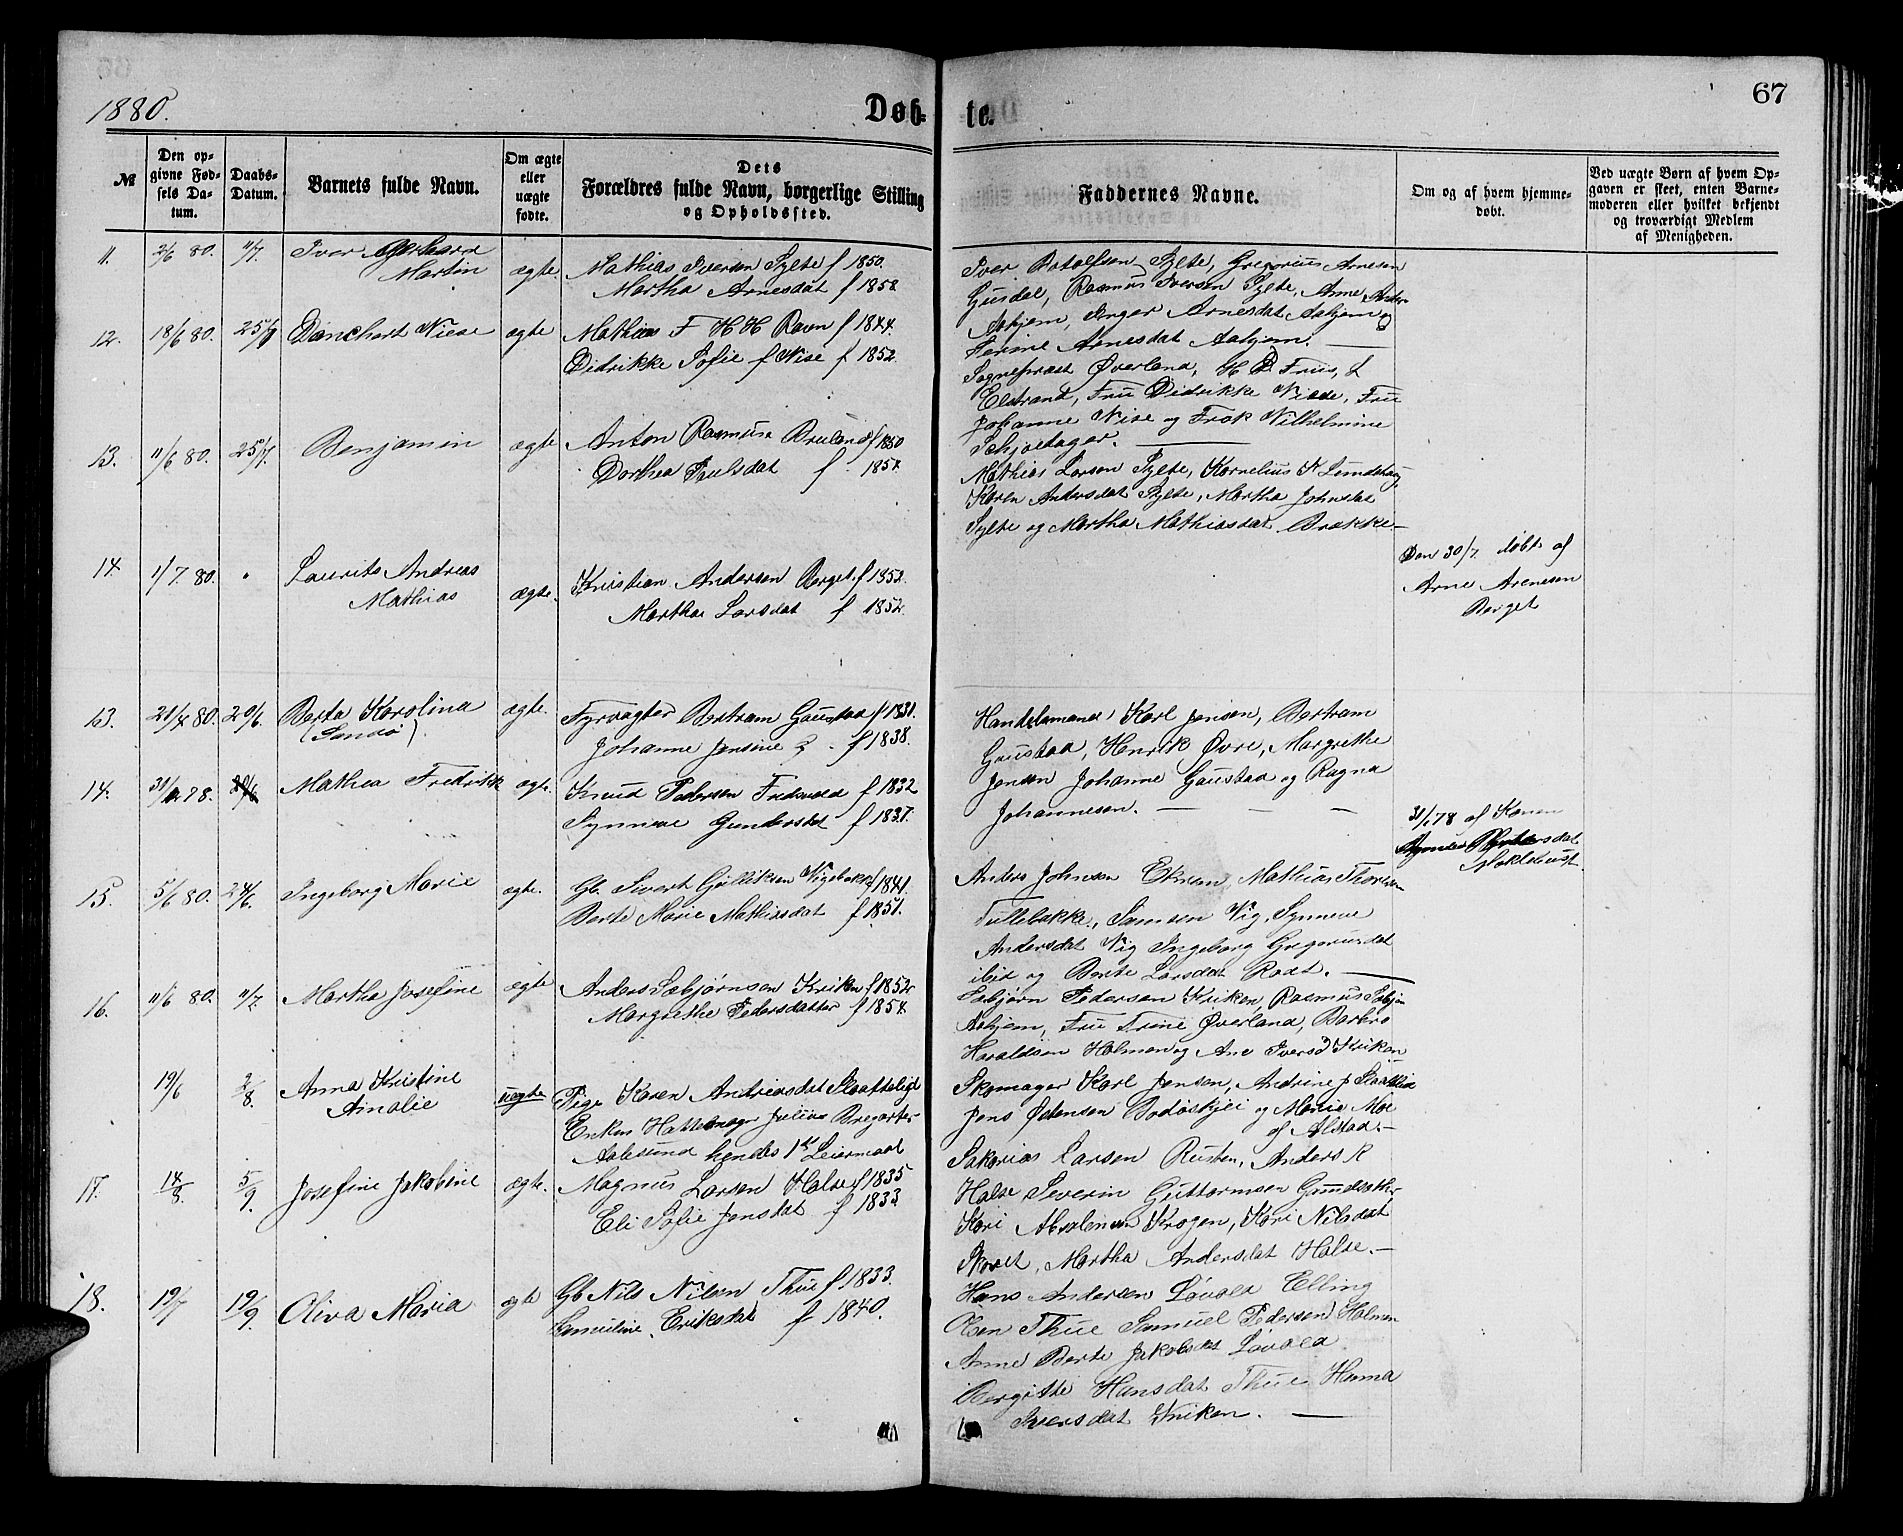 1880.
Døb-
te.
67
№
Den op-
givne Fød-
sels Da-
tum.
Daabs-
Datum.
Barnets fulde Navn.
Om ægte
eller
uægte
fødte.
Dets
Forældres fulde Navn, borgerlige Stilling
og Opholdssted.
Faddernes Navne.
Om og af hvem hjemme-
døbt.
Ved uægte Børn af hvem Op-
gaven er skeet, enten Barne-
moderen eller hvilket bekjendt
og troværdigt Medlem
af Menigheden.
11. 2/6 80. 11/7. Iver Gerhard
Martin
ægte
Mathias Iversen Sylte f 1850.
Martha Arnesdat f 1858
Iver Botolfsen Sylte, Gregorius Arnesen
Gusdal, Rasmus Iversen Sylte, Anne Ander
Aahjem, Inger Arnesdat Aahjem og
Serine Arnesdat Aahjem.
12. 18/6 80. Danchert Niese ægte
Mathias F H H Ravn f 1844.
Didrikke Sofie f Nise f 1852.
Sogneprast Øverland, H D Friis, L
Elstrand, Fru Didrikke Niese, Fru
Johanne Nise og Frøk Vilhelmine
Schjoldager.
13. 11/6 80. 25/7. Benjamin ægte
Anton Rasmus Bruland f 1850
Dorthea Paulsdat f 1854
Mathias Larsen Sylte, Kornelius K Lundehaug
Karen Andersdat Sylte, Martha Johnsdat
Sylte og Martha Mathiasdat Brække.
14. 1/7. 80. Laurits Andreas
Mathias
ægte.
Kristian Andersen Berget f 1852.
Martha Larsdat f 1852.
Den 30/7. døbt af
Arne Arnesen
Berget
13. 21/4 80. 20/6. Berta Karolina
(Sandø).
ægte.
Fyrvagter Bertram Gaustad f 1831.
Johanne Jensine f 1838.
Handelsmand Karl Jensen, Bertram
Gaustad, Henrik Øvre, Margrethe
Jensen Johanne Gaustad og Ragna
Johannesen.
14. 78. Mathea Fredrikke ægte.
Knud Pedersen Fredsvold f 1832
Synneve Gundersdat f 1837.
31/1 78 af Konen
15. 5/6 80. 24/6. Ingeborg Marie ægte.
Gb. Sivert Gulliksen Vigebakke f 1841.
Berte Marie Mathiasdat f 1851.
Anders Johnsen Ekrem, Mathias Thoresen
Tullebakke, Samsen Vig, Synneve
Andersdat Vig Ingeborg Gregoriusdat
ibid og Berte Larsdat Rødt.
16. 11/6 80. 11/7. Martha Josefine ægte
Anders Sæbjørnsen Kriken f 1852
Margrethe Pedersdatter f 1854
Sæbjørn Pedersen Kriken, Rasmus Sæbjør
Aahjem, Fru Trine Øverland, Barbro
Haraldsen Holmen og Ane Iversd Kriken
19/6 2/8. Anna Kristine
Amalie
uægte
Pige Karen Andreasdat Slaattelid
Enkem Hattemager Julius Bregarter
Aalesund hendes 1st Leiermaal
Skomager Karl Jensen, Andrine J Slaattelid
Jens Østensen Bodøskjei og Marie Moe
af Alstad.
17. 14/8. 5/9. Josefine Jakobine ægte.
Magnus Larsen Halse f 1835
Eli Sofie Jonsdat f 1833
Sakarias Larsen Rusten, Anders R
Halse Severin Guttormsen Gamdsæther
Kari Absalonsen Krogen, Kari Nilsdat
Skaret, Martha Andersdat Halse.
18. 19/7 19/9. Oliva Maria ægte
Gb Nils Nilsen Thue f 1833.
Samuline Eriksdat f 1840.
Hans Andersen Løvold Elling
Olsen Thue Samuel Pedersen Holmen
Anne Berte Jakobsdat Løvold
Bergitte Hansdat Thue Hanna
Iversdat Kriken.